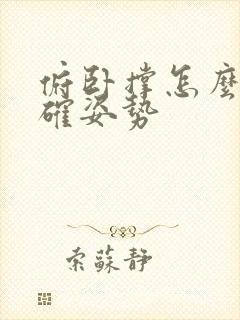 俯卧撑怎麽
確姿势
索蘇靜